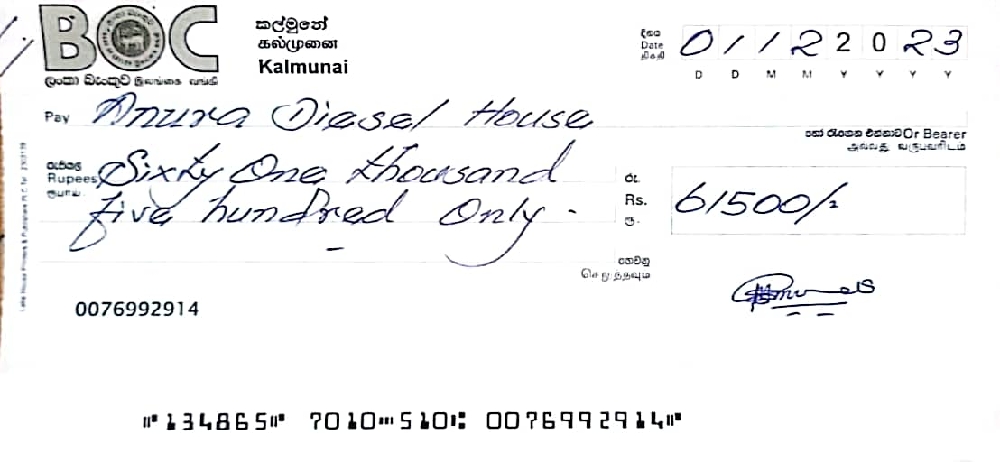 BOC
ලංකා බැංකුව இலங்கை வங்கி
කල්මුනේ
கல்முனை
Kalmunai
දිනය
Date
திகதி
01122023
D D M M Y Y Y Y
Pay Anura Diesel House
හෝ රැගෙන එන්නාට Or Bearer
அல்லது வருபவரிடம்
රුපියල්
Rupees Sixty One thousand
ரூபாய்
five hundred Only -
රු.
Rs. 61500/=
ரூ.
ගෙවනු
செலுத்தவும்
0076992914
⑈134865⑈ 7010⑉510⑆ 0076992914⑈